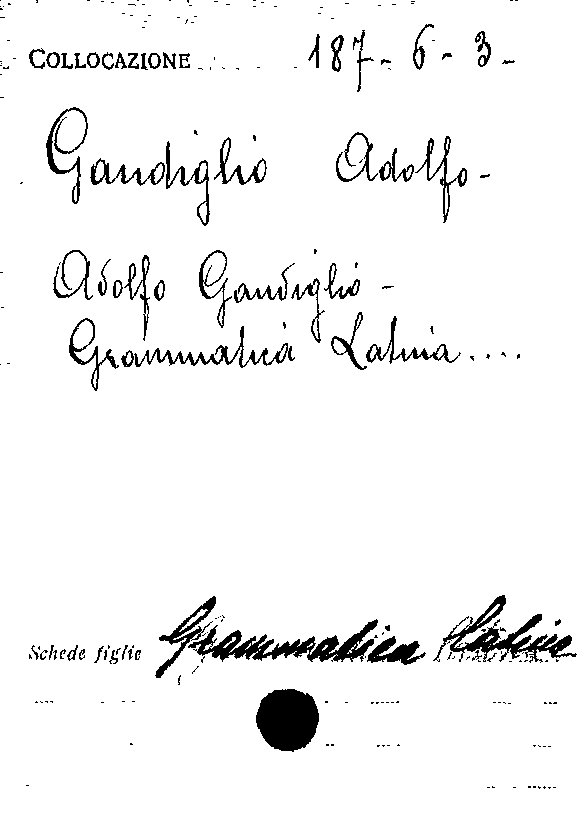 COLLOCAZIONE 187-6-3-
Gandiglio Adolfo-
Adolfo Gandiglio -
Grammatica Latina....
Schede figlie Grammatica Latina